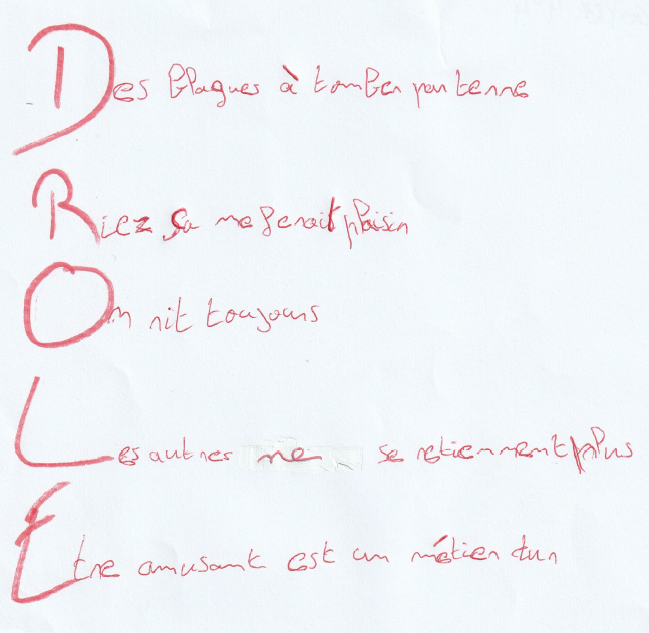 Des blagues à tomber par terre
Riez ça me ferait plaisir
On rit toujours
Les autres ne se retiennent plus
Etre amusant est un métier dur